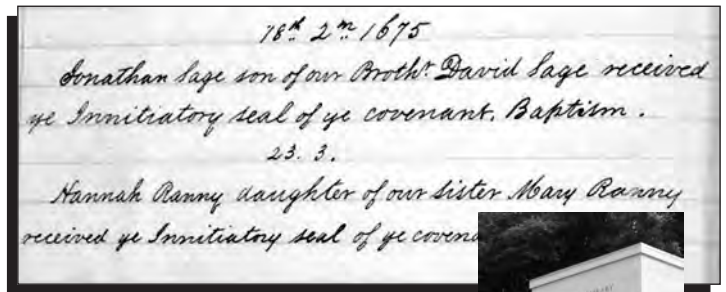 18th 2m 1675
Jonathan Sage son of our Brotht David Sage received
ye Innitiatory seal of ye covenant, Baptism.
23. 3.
Hannah Ranny daughter of our sister Mary Ranny
received ye Innitiatory seal of ye